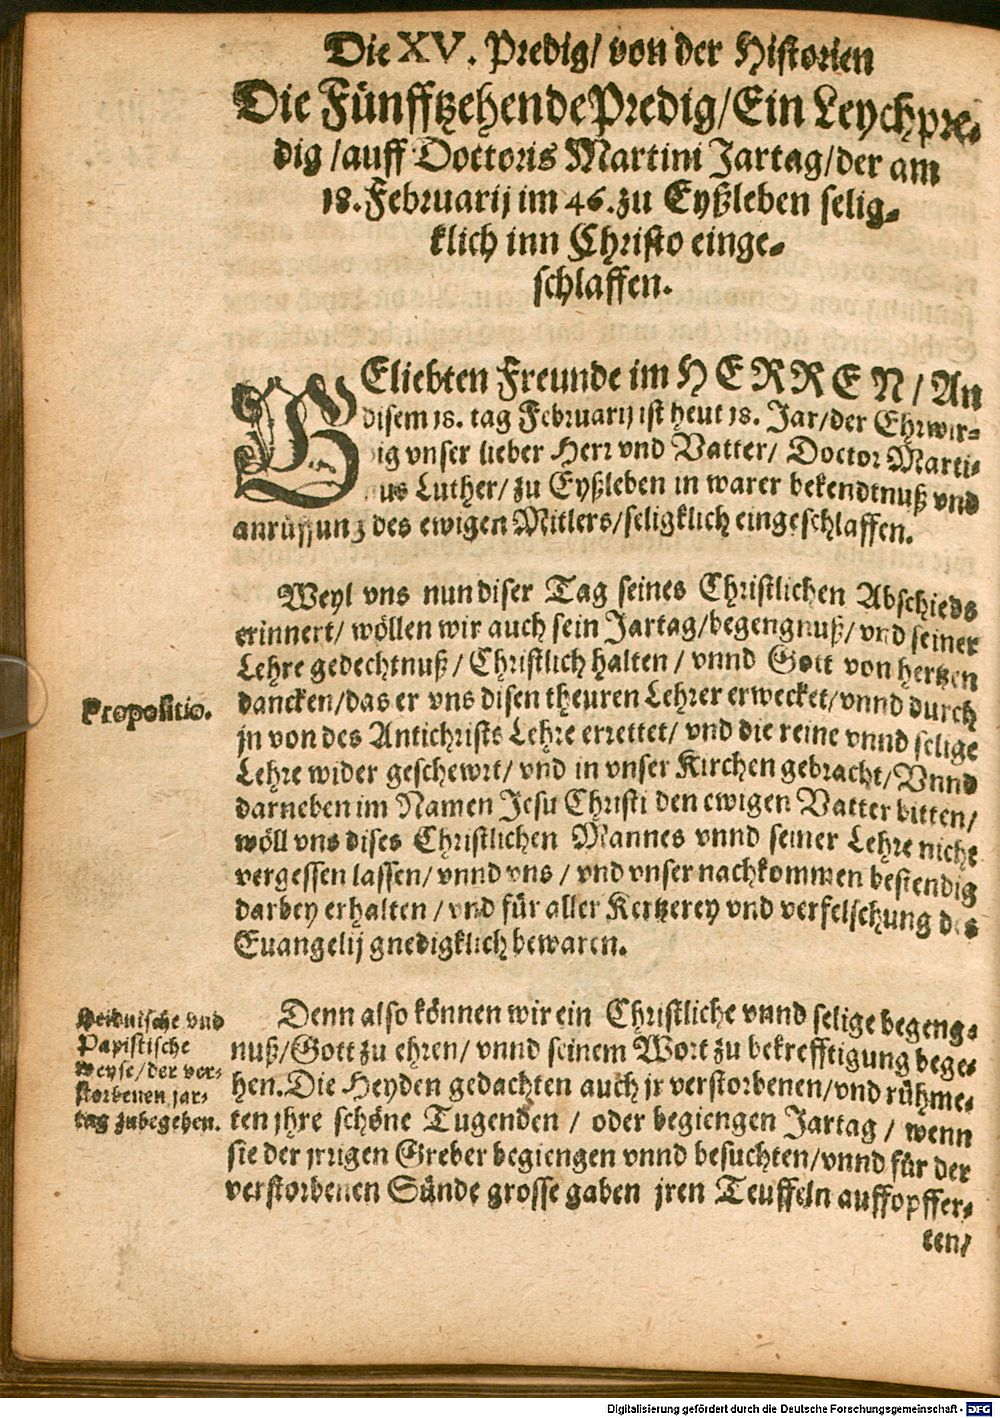 Die XV. Predig/ von der Historien
Die Fünfftzehende Predig/ Ein Leychpre-
dig/ auff Doctoris Martini Jartag/ der am
18. Februarij im 46. zu Eyßleben selig-
klich inn Christo einge-
schlaffen.
GEliebten Freunde im HERREN/ An
disem 18. tag Februarij ist heut 18. Jar/ der Ehrwir-
dig vnser lieber Herr vnd Vatter/ Doctor Marti-
nus Luther/ zu Eyßleben in warer bekendtnuß vnd
anrüffung des ewigen Mitlers/ seligklich eingeschlaffen.
Weyl vns nun diser Tag seines Christlichen Abschieds
erinnert/ wöllen wir auch sein Jartag/ begengnuß/ vnd seiner
Lehre gedechtnuß/ Christlich halten/ vnnd Gott von hertzen
Propositio.
dancken/ das er vns disen theuren Lehrer erwecket/ vnnd durch
jn von des Antichrists Lehre errettet/ vnd die reine vnnd selige
Lehre wider geschewrt/ vnd in vnser Kirchen gebracht/ Vnnd
darneben im Namen Jesu Christi den ewigen Vatter bitten/
wöll vns dises Christlichen Mannes vnnd seiner Lehre nicht
vergessen lassen/ vnnd vns/ vnd vnser nachkommen bestendig
darbey erhalten/ vnd für aller Ketzerey vnd verfelschung des
Euangelij gnedigklich bewaren.
Heidnische vnd
Papistische
weyse/ der ver-
storbenen jar-
tag zubegehen.
Denn also können wir ein Christliche vnnd selige begeng-
nuß/ Gott zu ehren/ vnnd seinem Wort zu bekrefftigung bege-
hen. Die Heyden gedachten auch jr verstorbenen/ vnd rühme-
ten jhre schöne Tugenden/ oder begiengen Jartag/ wenn
sie der jrrigen Greber begiengen vnnd besuchten/ vnnd für der
verstorbenen Sünde grosse gaben jren Teuffeln auffopffer-
ten/
Digitalisierung gefördert durch die Deutsche Forschungsgemeinschaft - DFG